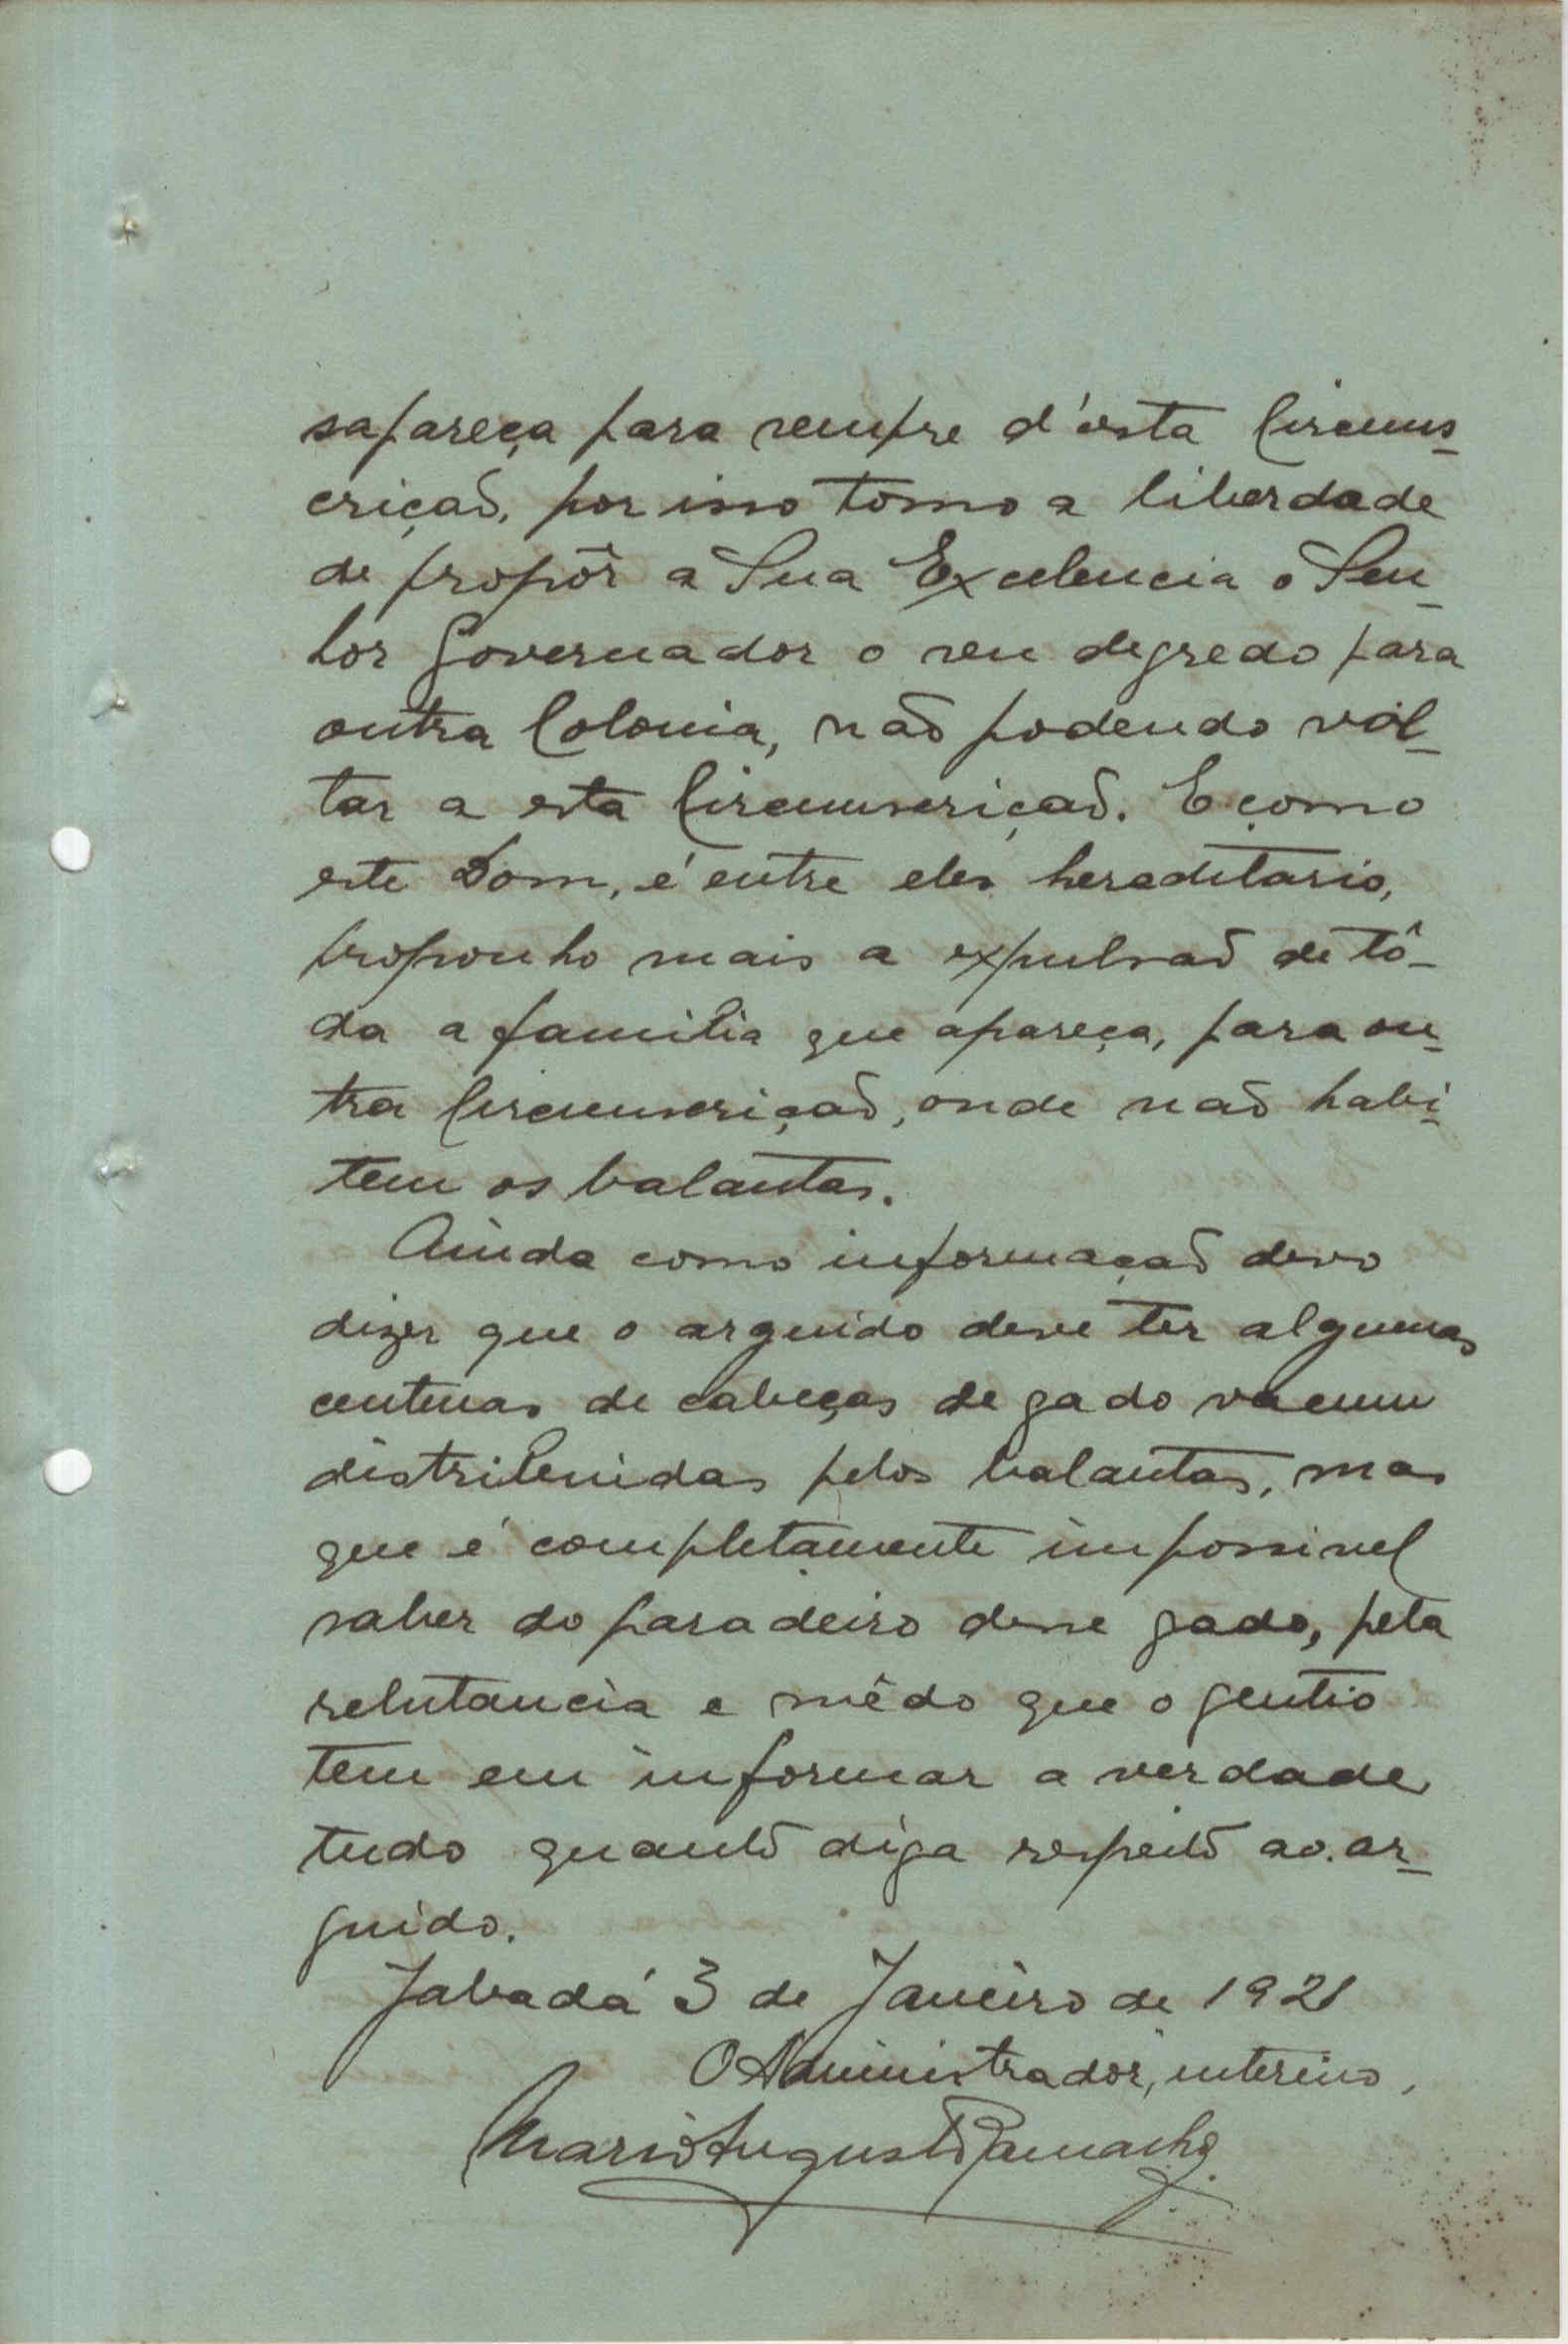 sapareça para sempre d'esta Circuns-
crição, por isso tomo a liberdade
de propôr a Sua Excelencia o Sen-
hor Governador o seu degredo para
outra Colonia, não podendo vol-
tar a esta Circunscrição. E como
este Dom, é entre eles hereditario,
proponho mais a expulsão de tô-
da a familia que apareça, para ou-
tra Circunscrição, onde não habi-
tem os balantas.
Ainda como informação devo
dizer que o arguido deve ter algumas
centenas de cabeças de gado vacum
distribuidas pelos balantas, mas
que é completamente impossivel
saber do paradeiro desse gado, pela
relutancia e mêdo que o gentio
tem em informar a verdade
tudo quanto diga respeito ao ar-
guido.
Jabadá 3 de Janeiro de 1921
O Administrador, interino,
Mario Augusto Ramacho